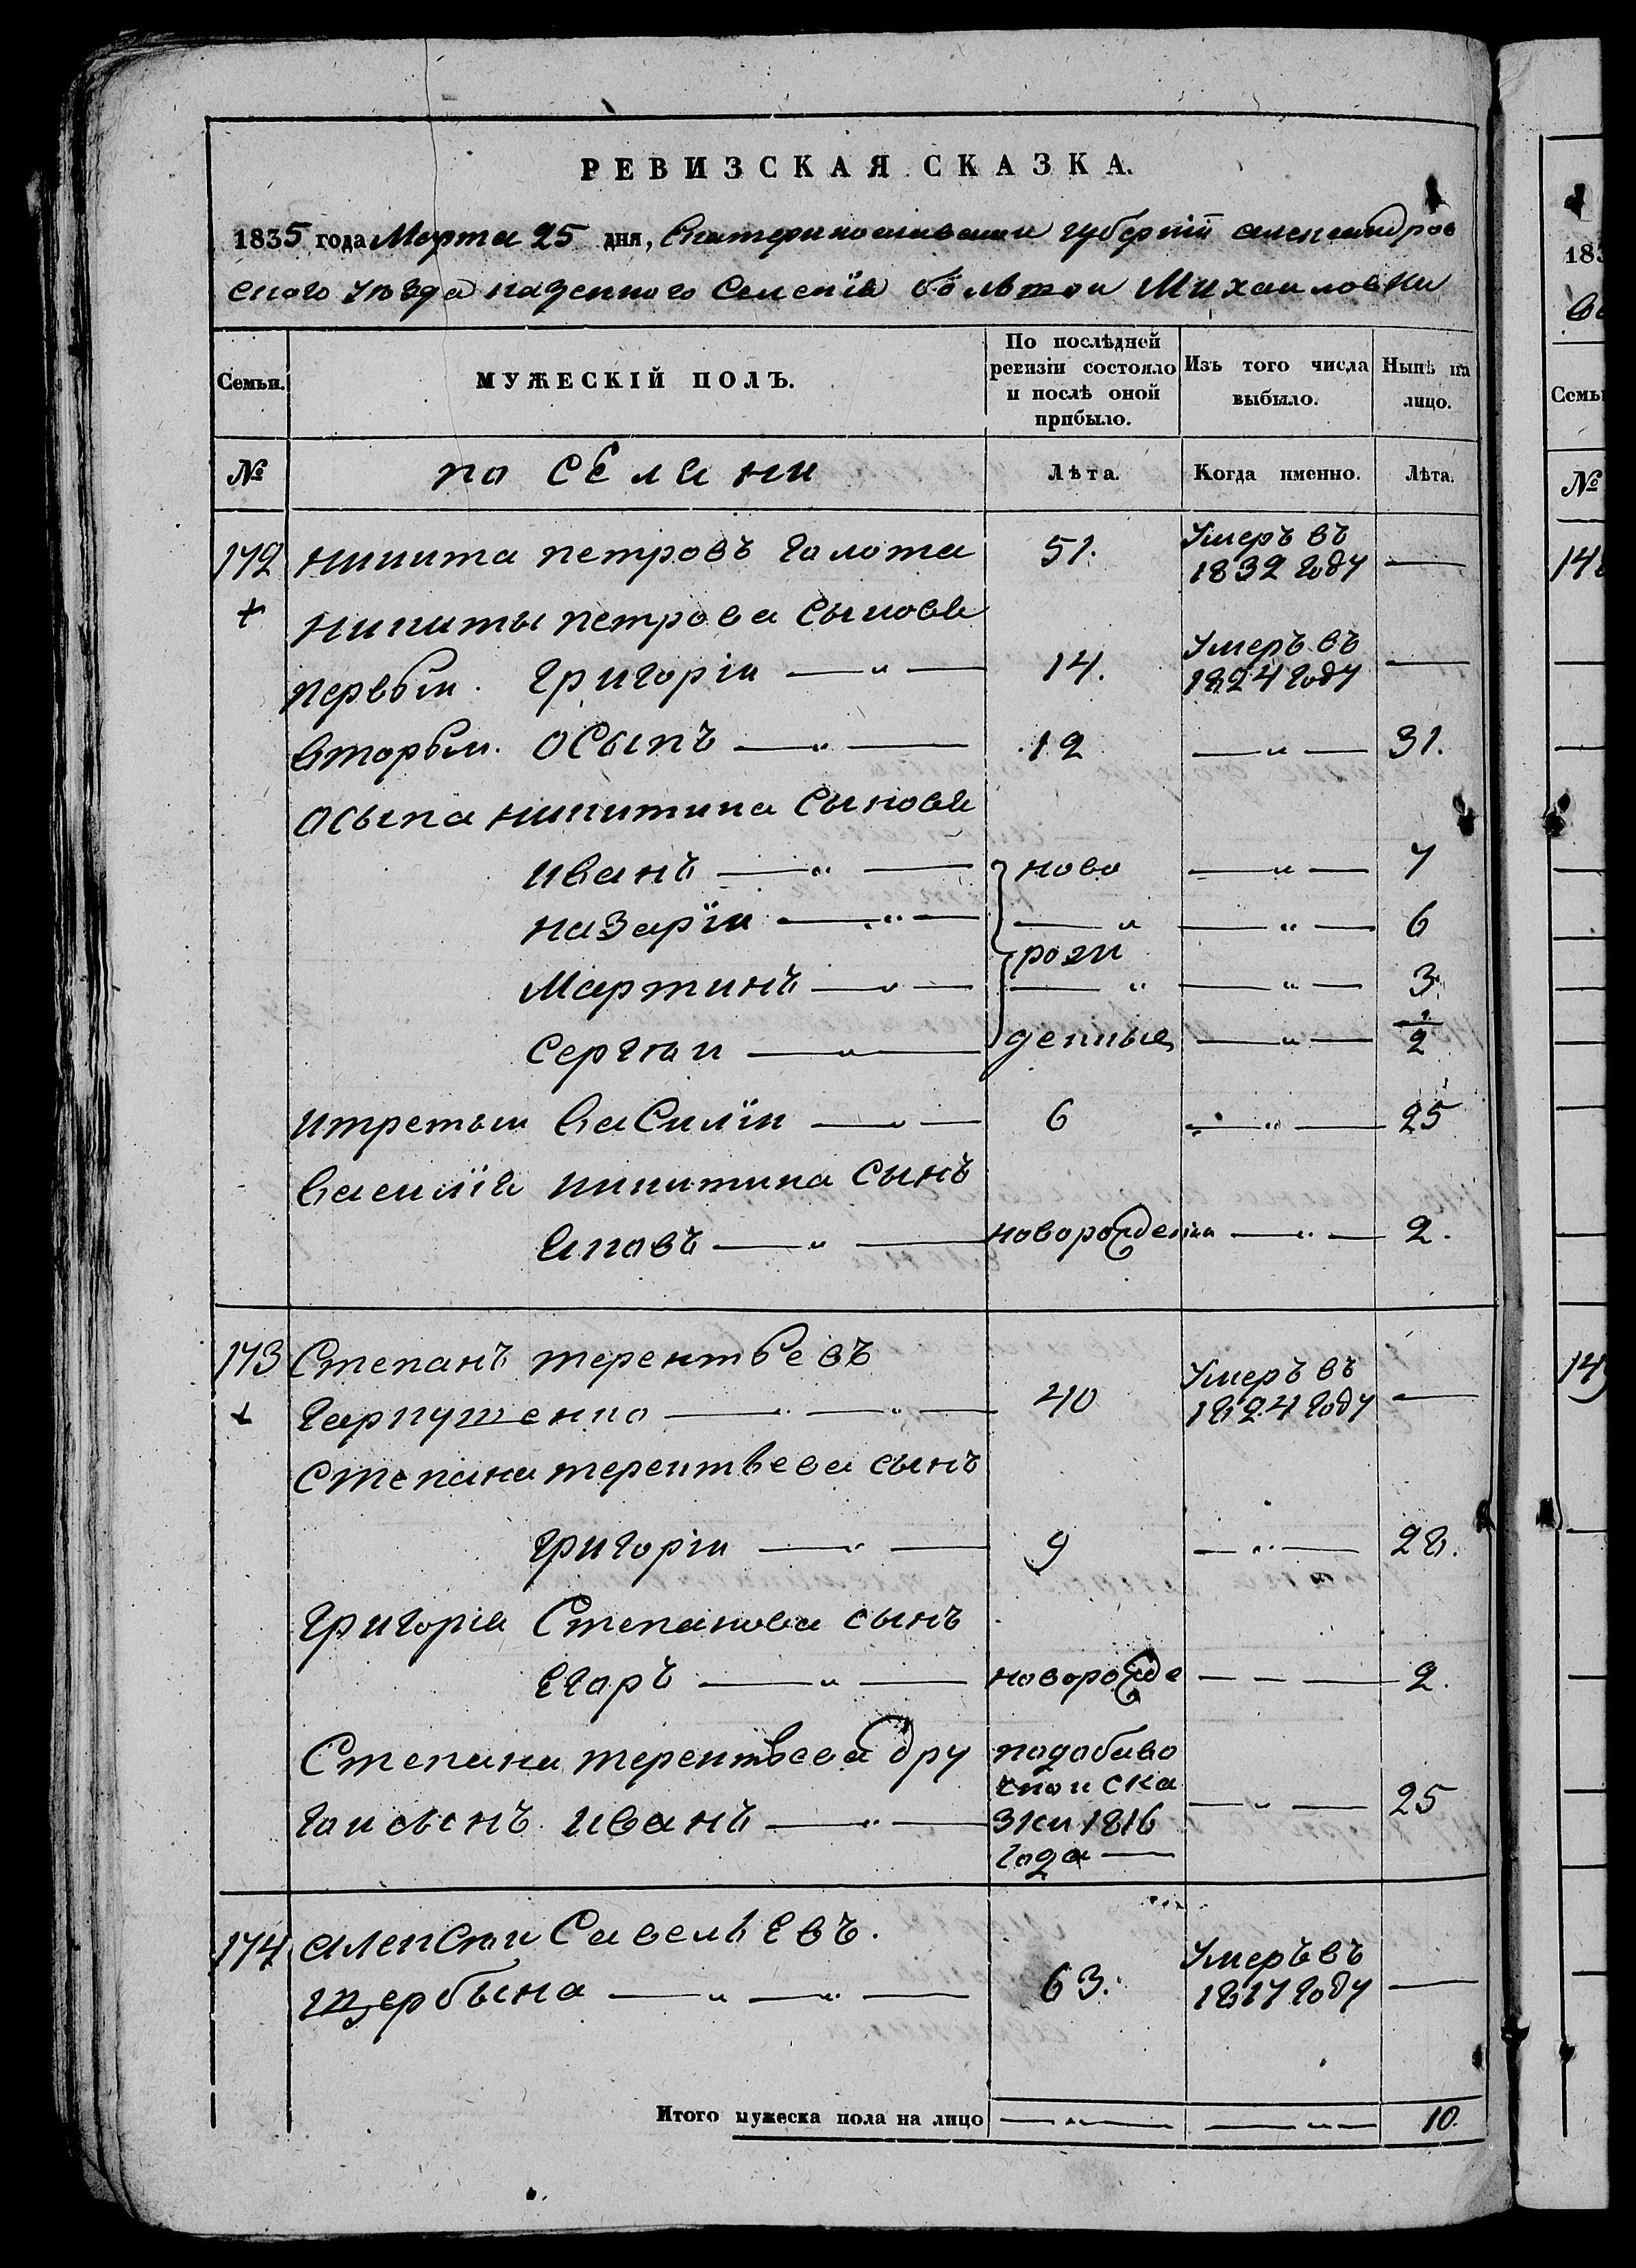 РЕВИЗСКАЯ СКАЗКА.
1835 года Марта 25 дня, Екатеринославской губерніи александров
ского уѣзда казенного Селенія больтой Михаиловки
Семьи. МУЖЕСКІЙ ПОЛЪ. По послѣдней ревизіи состояло и послѣ оной прибыло. Изъ того числа выбыло. Нынѣ на лицо.
№ поселяни Лѣта. Когда именно. Лѣта.
172 никита петровъ Голота 51. Умеръ въ 1832 году —
никиты петрова сыновя
первый. Григорій — „ — 14. Умеръ въ 1824 году —
вторый. осыпъ — „ — 12 — „ — 31.
осыпа никитина сыновя
иванъ — „ — ново — „ — 7
назарій — „ — — „ — „ — 6
рож
Мартинъ — „ — — „ — „ — 3
Сергѣй — „ — денные — „ — 1/2
итретьи василій — „ — 6 — „ — 25
василія никитина сынъ
яковъ — „ — новорожден — „ — 2.
173 Степанъ терентьевъ
Гаркушенко — „ — „ — 40 Умеръ въ 1824 году —
степана терентьева сынъ
григорій — „ — 9 — „ — 28.
григорія Степанова сынъ
Егоръ — „ — новорожде — — — 2.
Степана терентьева дру подобаво
гой сынъ иванъ — „ — чной ска — „ — 25
зки 1816
года —
174 алексѣй Савельевъ.
щербына — „ — „ — 63. Умеръ въ 1817 году —
Итого мужеска пола на лицо — „ — — „ — 10.
183
Семьи
№
148
149